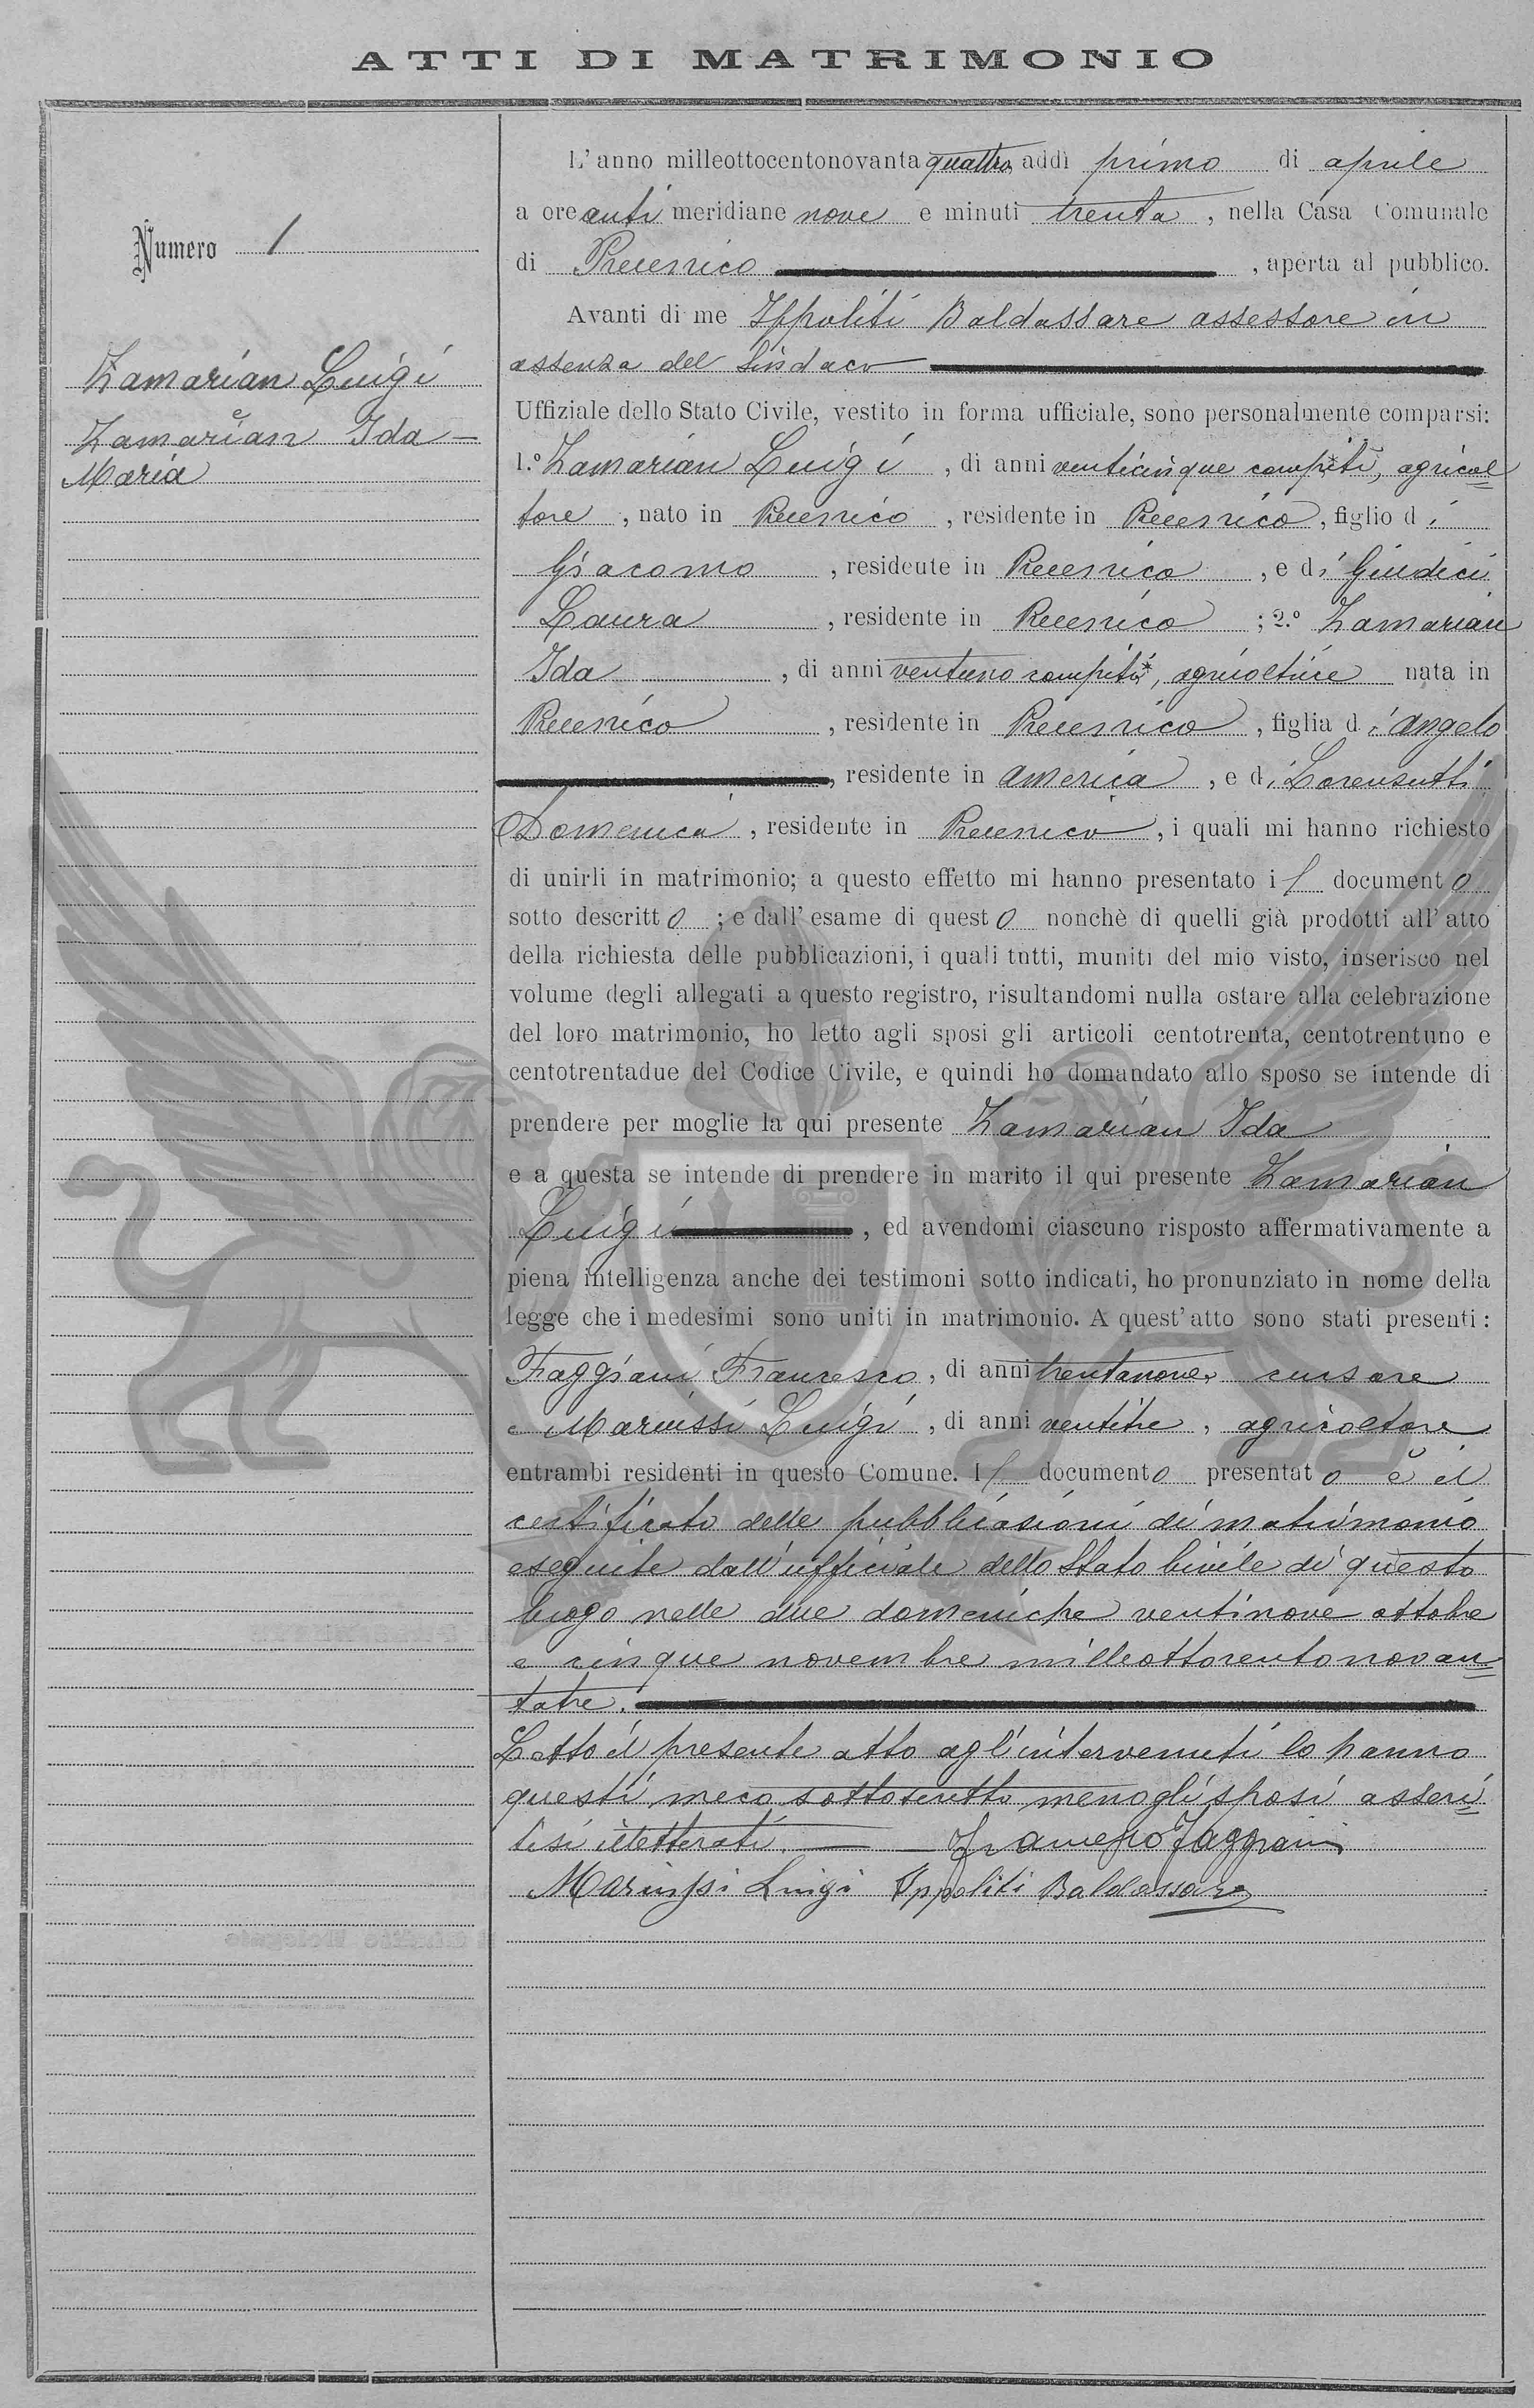 ATTI DI MATRIMONIO
Numero 1
Zamarian Luigi
e
Zamarian Ida
Maria
L'anno milleottocentonovantaquattro addì primo di aprile
a ore anti meridiane nove e minuti trenta, nella Casa Comunale
di Precenico, aperta al pubblico.
Avanti di me Ippoliti Baldassare assessore in
assenza del Sindaco
Uffiziale dello Stato Civile, vestito in forma ufficiale, sono personalmente comparsi:
1.º Zamarian Luigi, di anni venticinque compiti, agricol
tore, nato in Precenico, residente in Precenico, figlio di
Giacomo, residente in Precenico, e di Giudici
Laura, residente in Precenico; 2.º Zamarian
Ida, di anni ventuno compiti*, agricoltrice nata in
Precenico, residente in Precenico, figlia di Angelo
, residente in America, e di Lorensutti
Domenica, residente in Precenico, i quali mi hanno richiesto
di unirli in matrimonio; a questo effetto mi hanno presentato il documento
sotto descritto; e dall'esame di questo nonchè di quelli già prodotti all'atto
della richiesta delle pubblicazioni, i quali tutti, muniti del mio visto, inserisco nel
volume degli allegati a questo registro, risultandomi nulla ostare alla celebrazione
del loro matrimonio, ho letto agli sposi gli articoli centotrenta, centotrentuno e
centotrentadue del Codice Civile, e quindi ho domandato allo sposo se intende di
prendere per moglie la qui presente Zamarian Ida
e a questa se intende di prendere in marito il qui presente Zamarian
Luigi, ed avendomi ciascuno risposto affermativamente a
piena intelligenza anche dei testimoni sotto indicati, ho pronunziato in nome della
legge che i medesimi sono uniti in matrimonio. A quest'atto sono stati presenti:
Faggiani Francesco, di anni trentanove, cursore
e Marcussi Luigi, di anni ventitre, agricoltore
entrambi residenti in questo Comune. Il documento presentato è il
certificato delle pubblicasioni di matrimonio
eseguite dall'ufficiale dello Stato Civile di questo
luogo nelle due domeniche ventinove ottobre
e cinque novembre milleottocentonovan
tatre.
Letto il presente atto agl'intervenuti lo hanno
questi meco sottoscritto meno gli sposi asseri
tisi illetterati. Francesco Faggiani
Luigi Ippoliti Baldassare